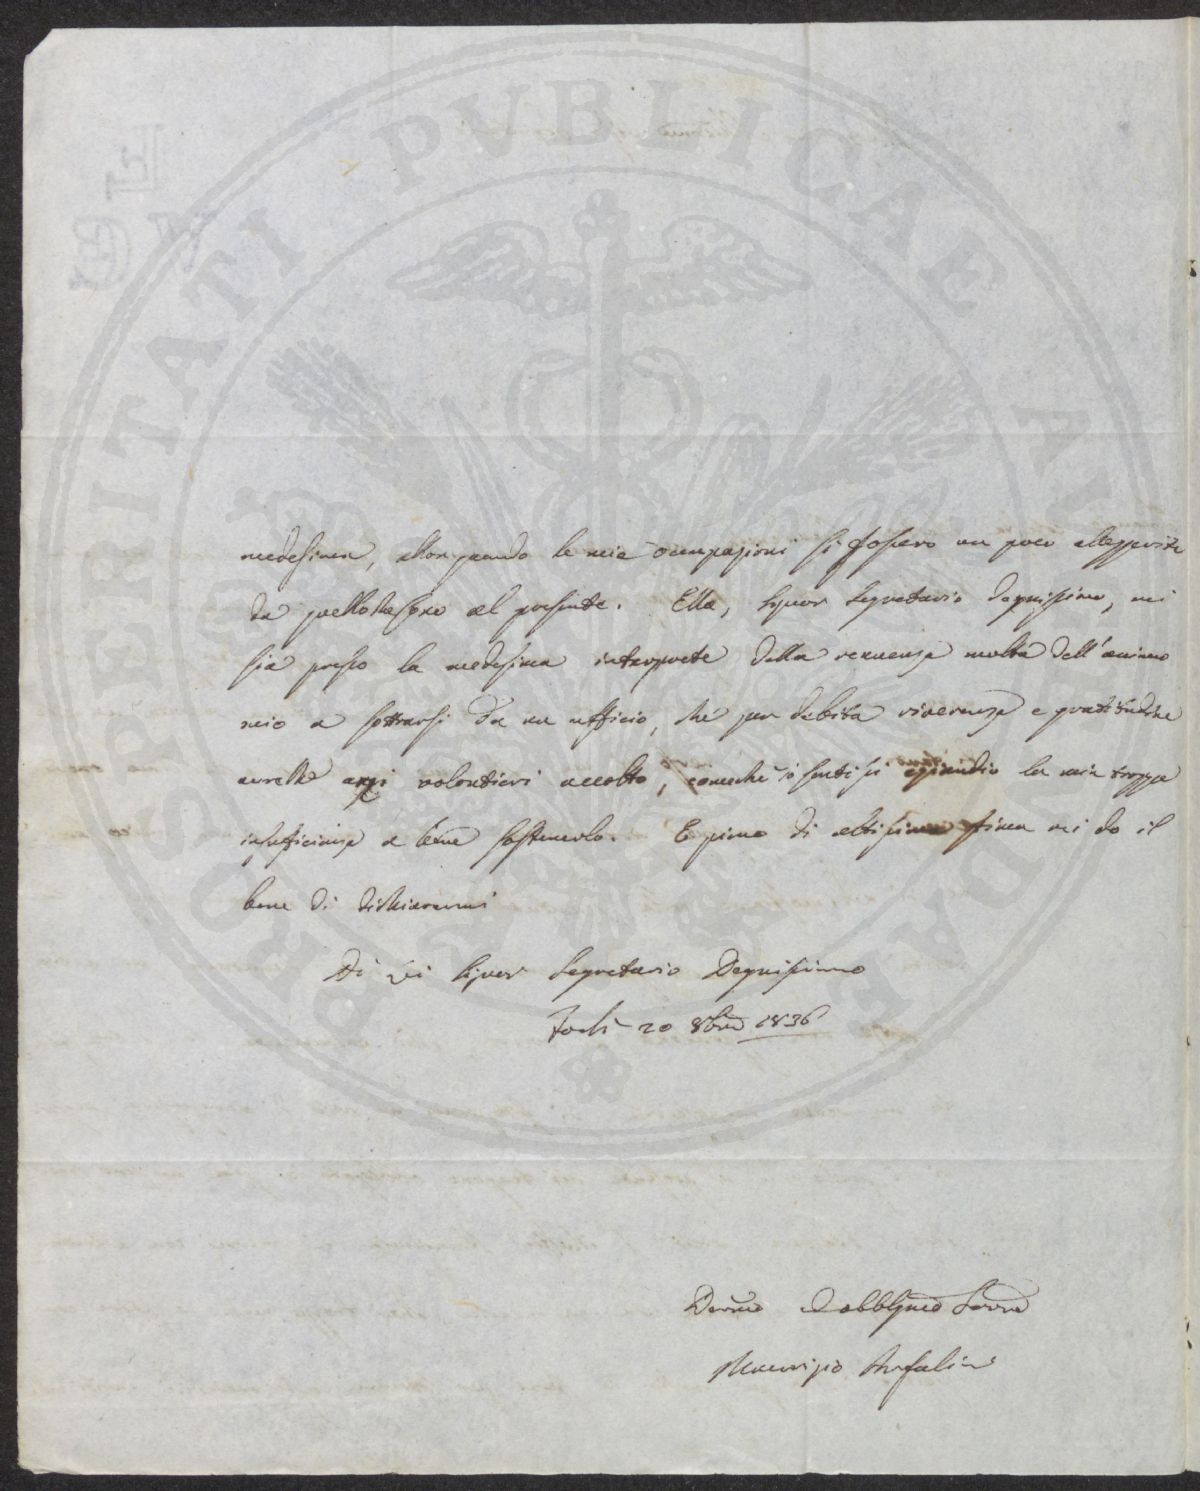 PROSPERITATI PVBLICAE AVGENDAE
medesima, allor quando le mie occupazioni si fossero un poco alleggerite
da quello che sono al presente. Ella, Signor Segretario degnissimo, mi
sia presso la medesima interprete della renuenza molta dell'animo
mio a sottrarsi da un ufficio, che per debita riverenza e gratitudine
avrebbe anzi volontieri accolto, comeché io sentissi eziandio la mia troppa
insufficienza a bene sostenerlo. E pieno di altissima stima mi do il
bene di dichiararmi
Di Lei Signor Segretario Degnissimo
Forlì 20 8bre 1836
Devmo ed obblgmo Servre
Maurizio Bufalini